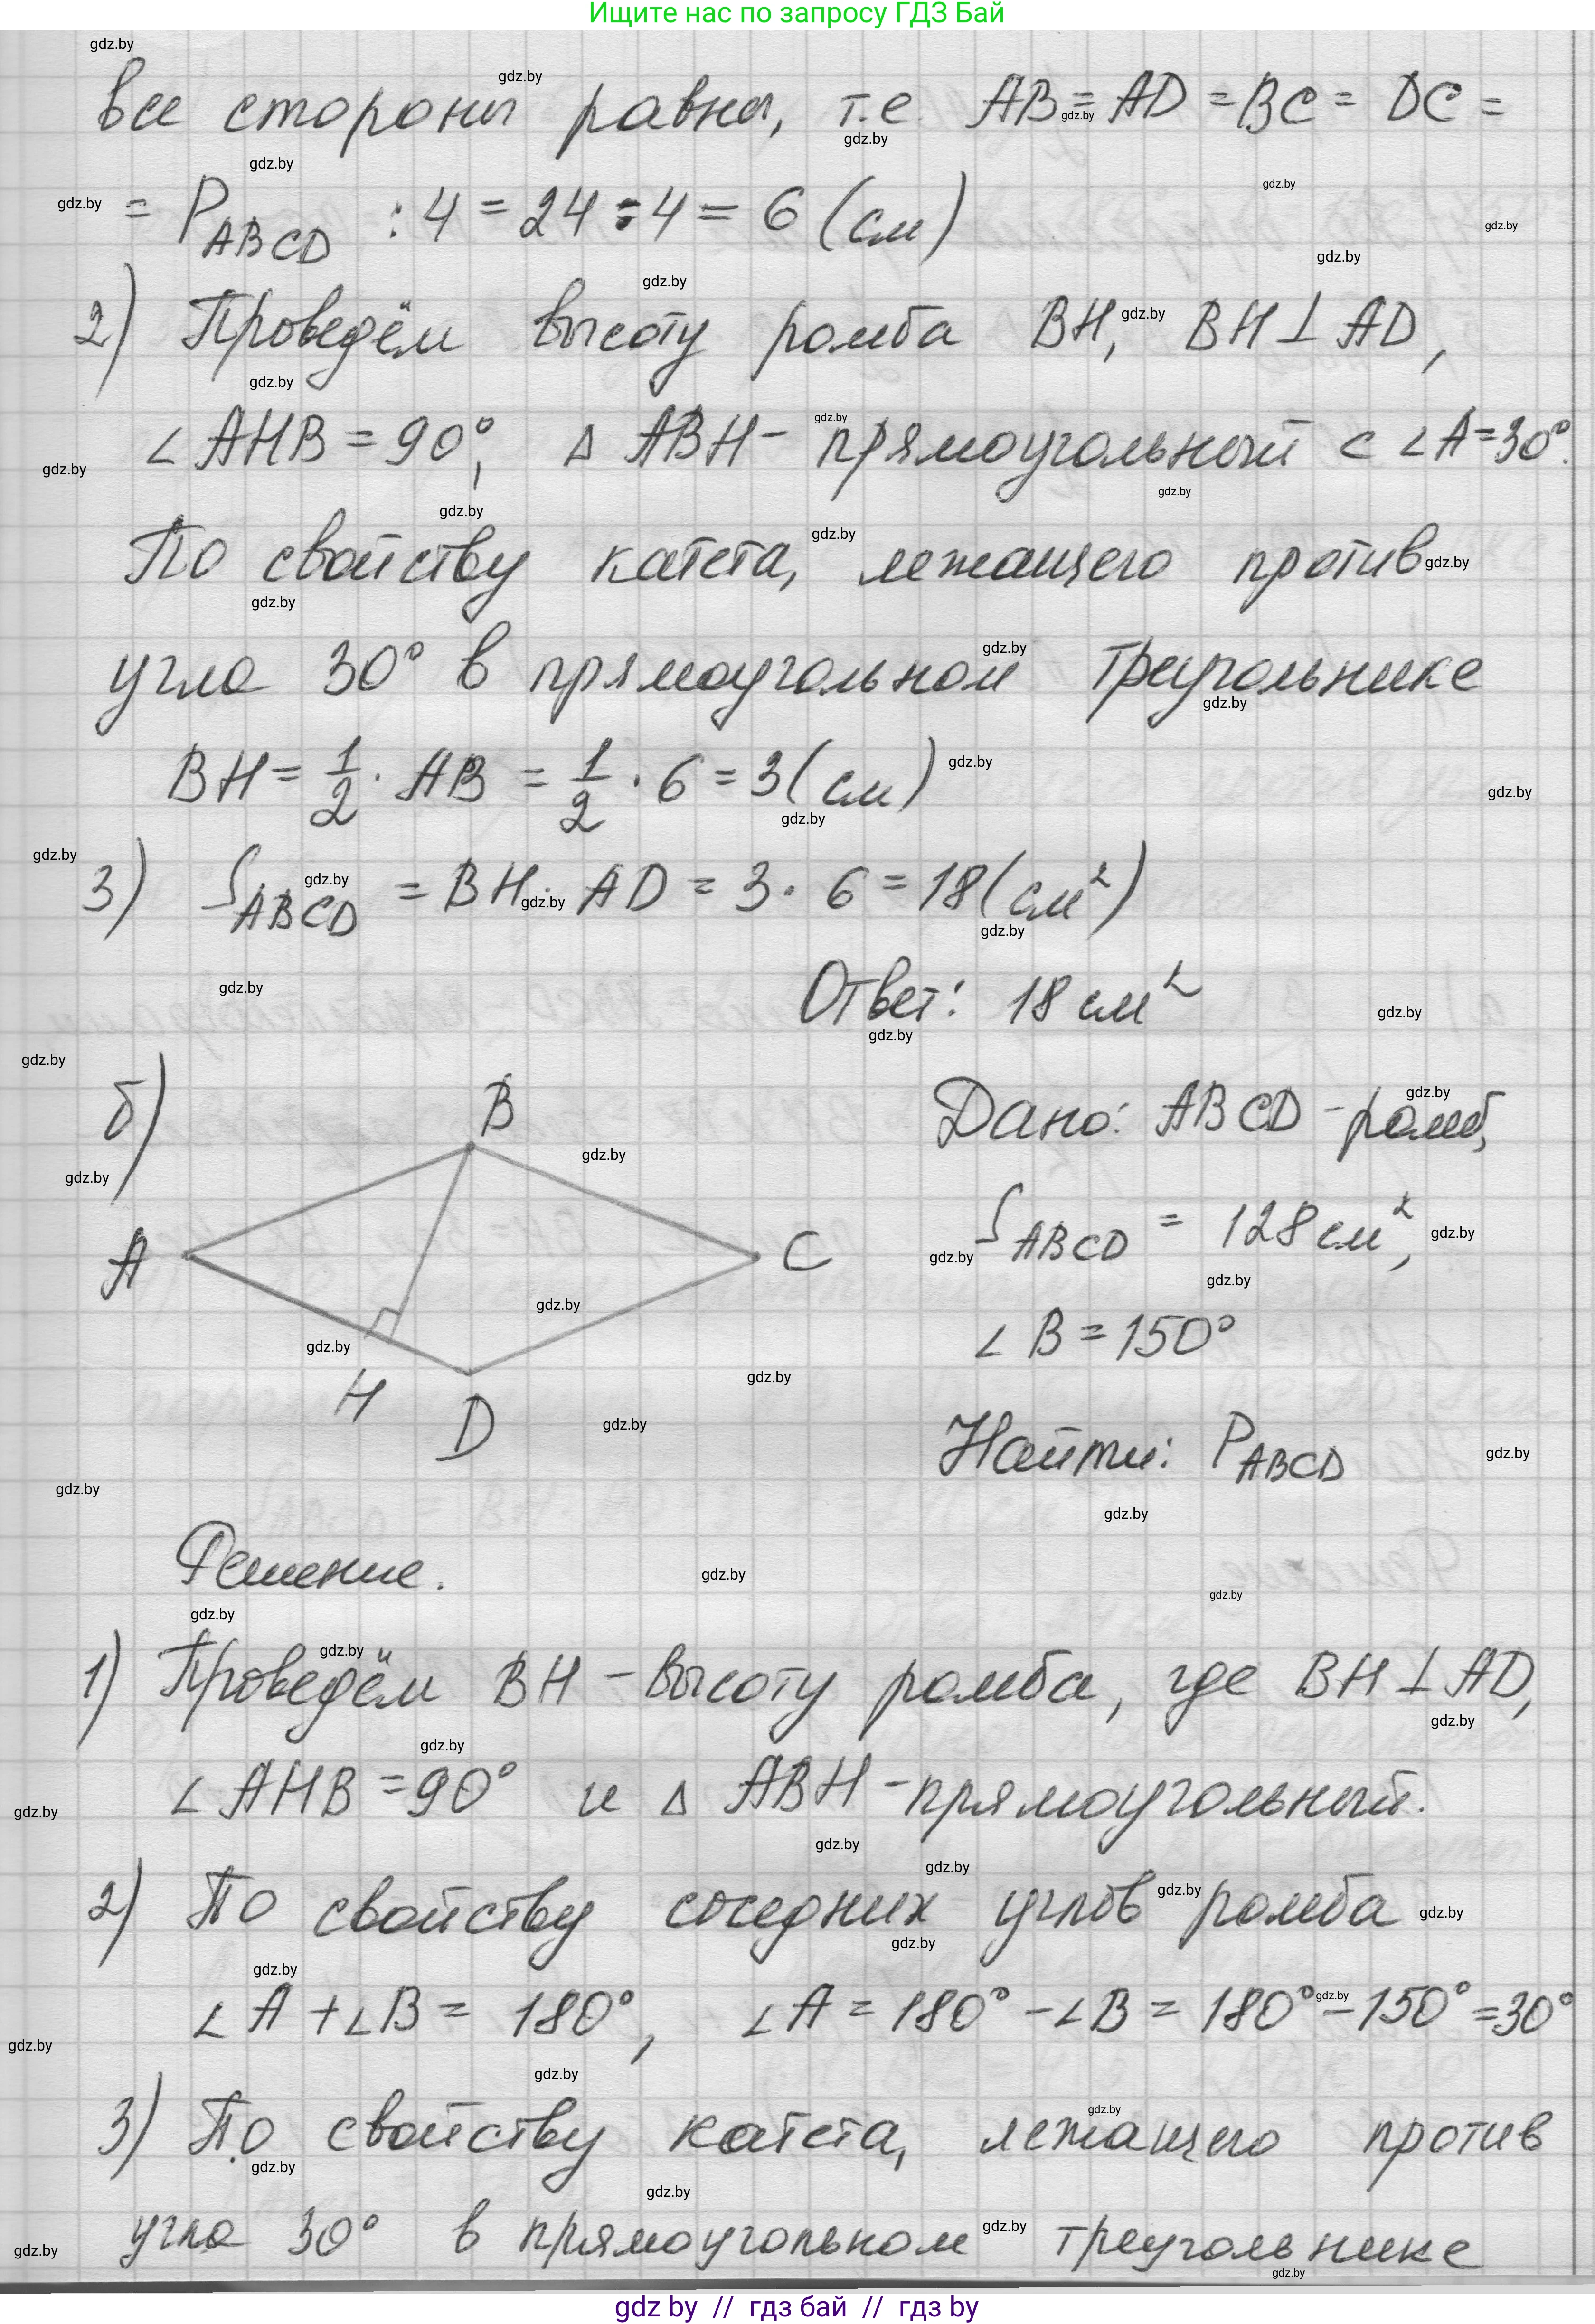 Ищите нас по запросу ГДЗ Бай
все стороны равны, т.е AB = AD = BC = DC =
= P_ABCD : 4 = 24 : 4 = 6 (см)
2) Проведём высоту ромба BH, BH ⊥ AD,
∠AHB = 90°, △ABH - прямоугольный с ∠A = 30°.
По свойству катета, лежащего против
угла 30° в прямоугольном треугольнике
BH = 1/2 · AB = 1/2 · 6 = 3 (см)
3) S_ABCD = BH · AD = 3 · 6 = 18 (см²)
Ответ: 18 см²
б)
B
A
C
H
D
Дано: ABCD - ромб,
S_ABCD = 128 см²,
∠B = 150°
Найти: P_ABCD
Решение.
1) Проведём BH - высоту ромба, где BH ⊥ AD,
∠AHB = 90° и △ABH - прямоугольный.
2) По свойству соседних углов ромба
∠A + ∠B = 180°, ∠A = 180° - ∠B = 180° - 150° = 30°
3) По свойству катета, лежащего против
угла 30° в прямоугольном треугольнике
gdz by // гдз бай // гдз by